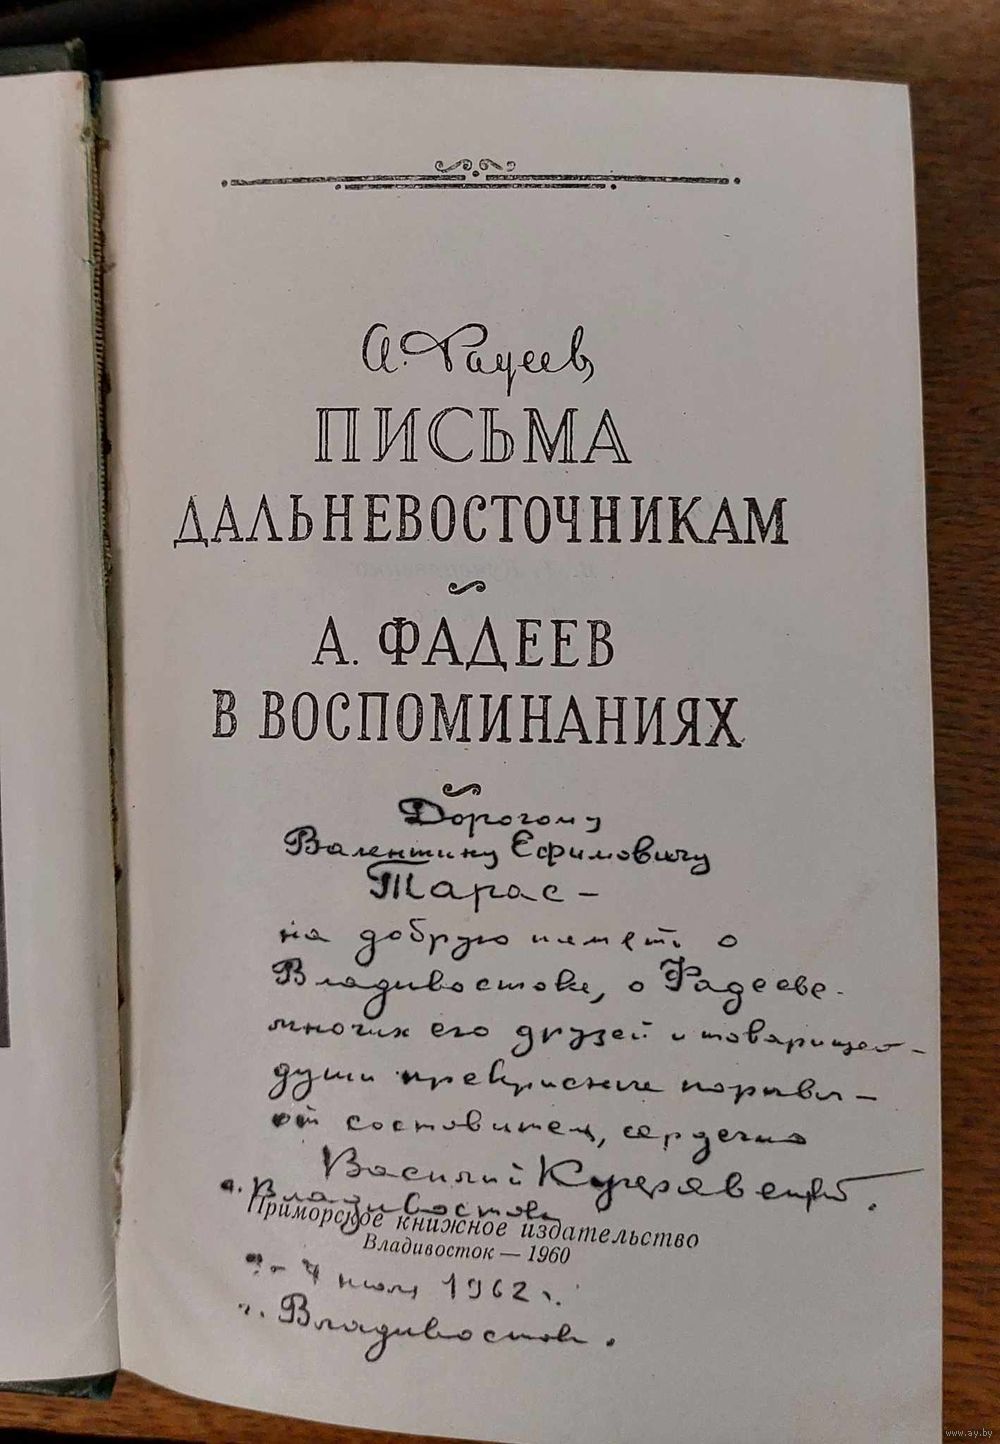 А. Фадеев
ПИСЬМА
ДАЛЬНЕВОСТОЧНИКАМ
А. ФАДЕЕВ
В ВОСПОМИНАНИЯХ
Дорогому
Валентину Ефимовичу
Тарас –
на добрую память о
Владивостоке, о Фадееве –
многих его друзей и товарищей –
души прекрасные порывы –
от составителя, сердечно
Василий Кучерявенко.
г. Владивосток
Приморское книжное издательство
Владивосток — 1960
4 июля 1962 г.
г. Владивосток.
www.ay.by